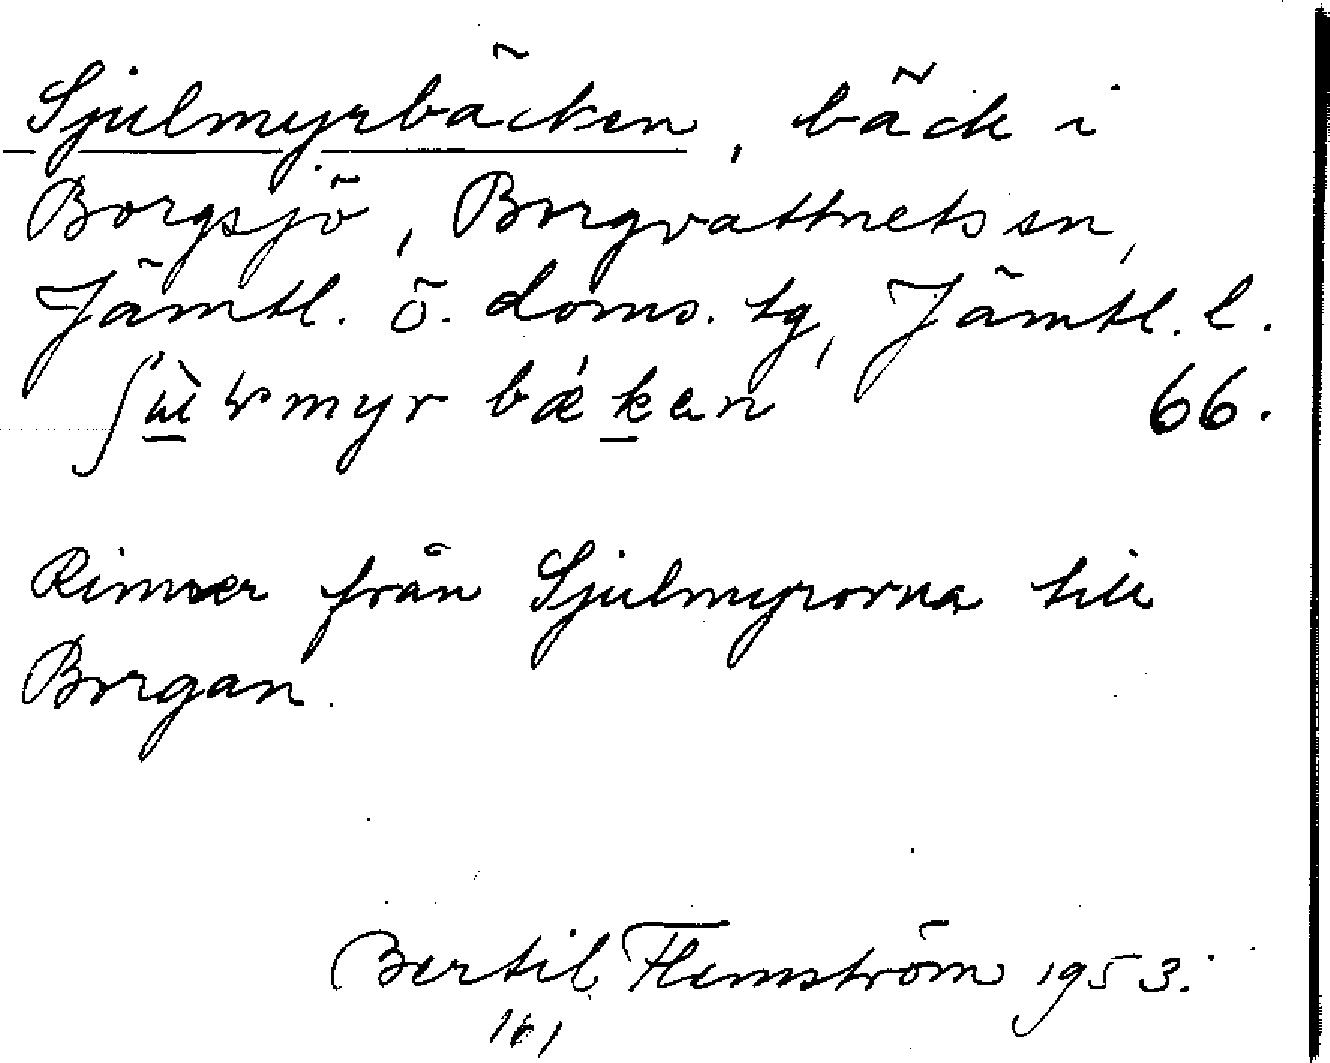 Sjulmyrbäcken, bäck i
Borgsjö, Borgvattnets sn,
Jämtl. ö. doms. tg, Jämtl. l.
myrbækan 66.
Rinner från Sjulmyrorna till
Borgan.
Bertil Flemström 1953.
161